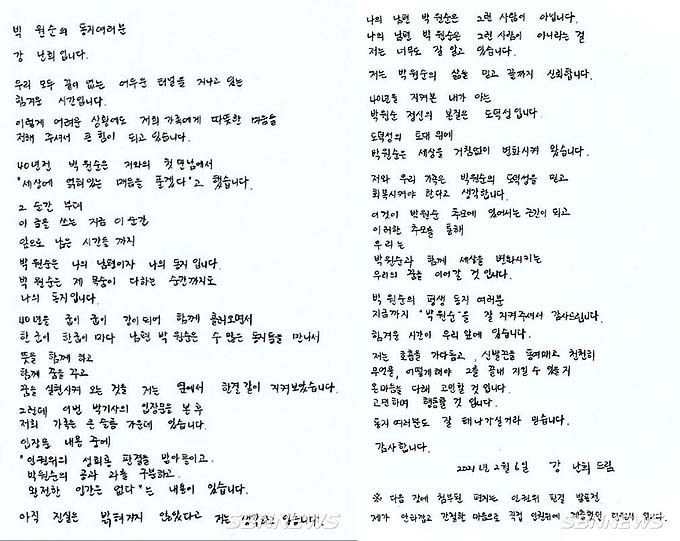 박 원순의 동지여러분
강 난희입니다.
우리 모두 끝이 없는 어두운 터널을 지나고 있는
힘겨운 시간입니다.
이렇게 어려운 상황에도 저희 가족에게 따뜻한 마음을
전해 주셔서 큰 힘이 되고 있습니다.
40년전 박원순은 저와의 첫 만남에서
"세상에 얽혀있는 매듭을 풀겠다"고 했습니다.
그 순간 부터
이 글을 쓰는 지금 이순간
앞으로 남은 시간들 까지
박원순은 나의 남편이자 나의 동지 입니다.
박 원순은 제 목숨이 다하는 순간까지도
나의 동지입니다.
40년을 굽이 굽이 강이되어 함께 흘러오면서
한 군이 한굽이 마다 남편 박 원순은 수 많은 동지들을 만나서
뜻을 함께 하고
함께 꿈을 꾸고
꿈을 실현시켜 오는 것을 저는 옆에서 한결 같이 지켜보았습니다.
그런데 이번 박기사의 입장문을 본 후
저희 가족은 큰 슬픔 가운데 있습니다.
입장문 내용 중에
"인권위의 성희롱 판결을 받아들이고
박원순의 공과 과를 구분하고,
완전한 인간은 없다"는 내용이 있습니다.
아직 진실은 밝혀지지 않았다고 저는 생각하고 있습니다.
나의 남편 박 원순은 그런 사람이 아닙니다.
나의 남편 박 원순은 그런 사람이 아니라는 걸
저는 너무도 잘 알고 있습니다.
저는 박원순의 삶을 믿고 끝까지 신뢰합니다.
40년을 지켜본 내가 아는
박원순 정신의 본질은 도덕성입니다.
도덕성의 토대 위에
박원순은 세상을 거침없이 변화시켜 왔습니다.
저와 우리 가족은 박원순의 도덕성을 믿고
회복시켜야 한다고 생각합니다.
이것이 박원순 추모에 있어서는 근간이 되고
이러한 추모를 통해
우리는
박원순과 함께 세상을 변화시키는
우리의 꿈을 이어갈 것 입니다.
박 원순의 평생 동지 여러분
지금까지 "박원순"을 잘 지켜주셔서 감사드립니다.
힘겨운 시간이 우리 앞에 있습니다.
저는 호흡을 가다듬고, 신발끈을 동여매고 천천히
무엇을, 어떻게해야 그를 끝내 지킬 수 있을지
온마음을 다해 고민할 것 입니다.
고민하며 행동할 것 입니다.
동지 여러분도 잘 해나가실거라 믿습니다.
감사합니다.
2021년 2월 6일 강 난희 드림
※ 다음 장에 첨부된 편지는 인권위 판결 발표전
제가 안타깝고 간절한 마음으로 직접 인권위에 제출했던 탄원서 입니다.
SBNNEWS
SBNNEWS